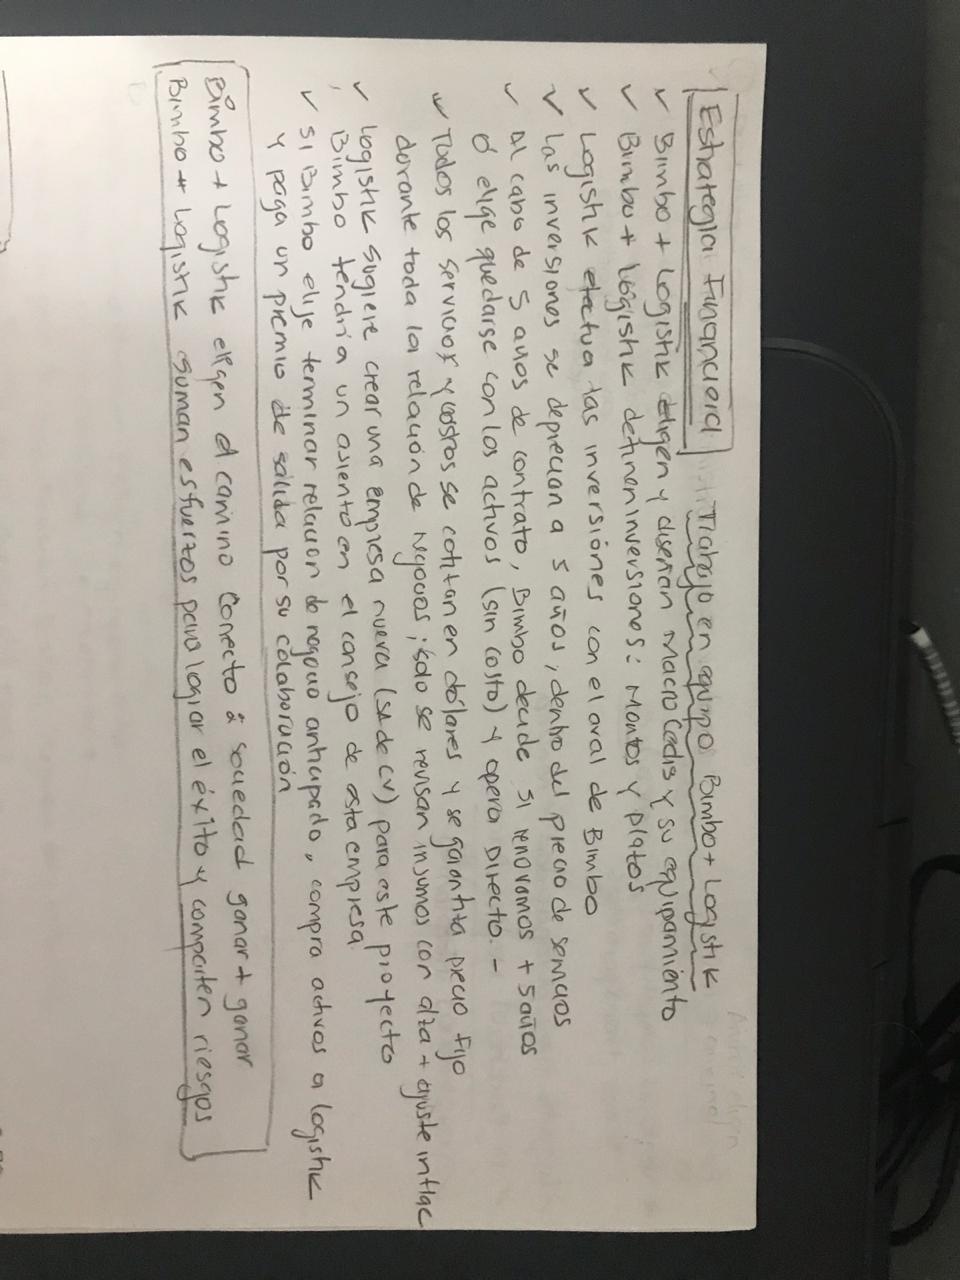 Estrategia Financiera Trabajo en equipo Bimbo + Logistik
✓ Bimbo + Logistik eligen y diseñan Macro Cedis y su equipamiento
✓ Bimbo + Logistik definen inversiones: Montos y Plazos
✓ Logistik efectua las inversiónes con el aval de Bimbo
✓ Las inversiones se deprecian a 5 años, dentro del precio de servicios
✓ Al cabo de 5 anos de contrato, Bimbo decide si renovamos + 5 años
ó elige quedarse con los activos (sin costo) y opera Directo. -
✓ Todos los servicios y costos se cotizan en dólares y se garantiza precio fijo
durante toda la relación de Negocios ; solo se revisan insumos con alza + ajuste inflac
✓ Logistik sugiere crear una empresa nueva (SA de CV) para este proyecto
Bimbo tendría un asiento en el consejo de esta empresa.
✓ Si Bimbo elije terminar relacion de negocio anticipado, compra activos a logistik
y paga un premio de salida por su colaboración
Bimbo + Logistik eligen el camino Correcto a sociedad ganar + ganar
Bimbo + Logistik suman esfuerzos para lograr el éxito y comparten riesgos